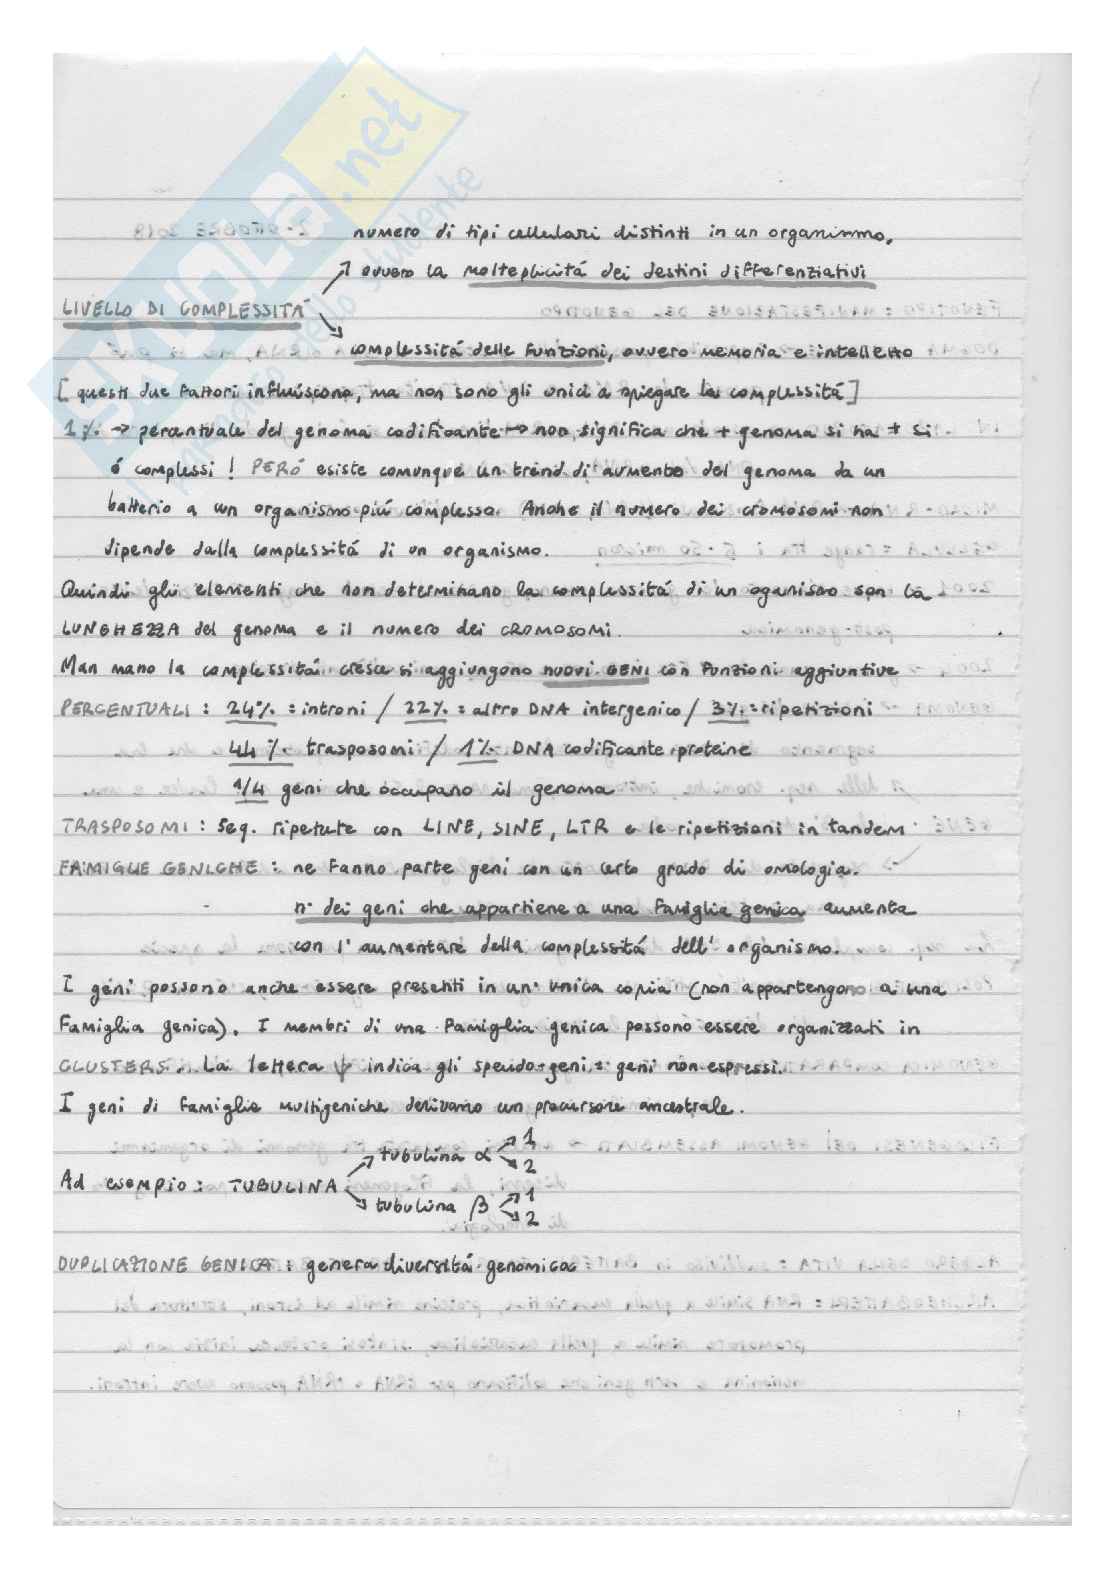 numero di tipi cellulari distinti in un organismo,
ovvero la molteplicitá dei destini differenziativi
LIVELLO DI COMPLESSITÁ
complessitá delle funzioni, ovvero memoria e intelletto
[questi due fattori influiscono, ma non sono gli unici a spiegare la complessitá]
1% → percentuale del genoma codificante → non significa che + genoma si ha + si
é complessi! PERÓ esiste comunque un trend di aumento del genoma da un
batterio a un organismo piú complesso. Anche il numero dei cromosomi non
dipende dalla complessitá di un organismo.
Quindi gli elementi che non determinano la complessitá di un oganismo son la
LUNGHEZZA del genoma e il numero dei CROMOSOMI.
Man mano la complessitá cresce si aggiungono NUOVI GENI con funzioni aggiuntive
PERCENTUALI : 24% = introni / 22% = altro DNA intergenico / 3% = ripetizioni
44% trasposomi / 1% DNA codificante proteine
1/4 geni che occupano il genoma
TRASPOSOMI : seq. ripetute con LINE, SINE, LTR e le ripetizioni in tandem
FAMIGLIE GENICHE : ne fanno parte geni con un certo grado di omologia.
n° dei geni che appartiene a una famiglia genica aumenta
con l'aumentare della complessitá dell'organismo.
I geni possono anche essere presenti in un' unica copia (non appartengono a una
famiglia genica). I membri di una famiglia genica possono essere organizzati in
CLUSTERS. La lettera ψ indica gli speudo-geni = geni non espressi.
I geni di famiglie multigeniche derivano un precursore ancestrale.
tubulina α → 1
→ 2
Ad esempio : TUBULINA
tubulina β → 1
→ 2
DUPLICAZIONE GENICA : genera diversitá genomica
SKUOLA.net